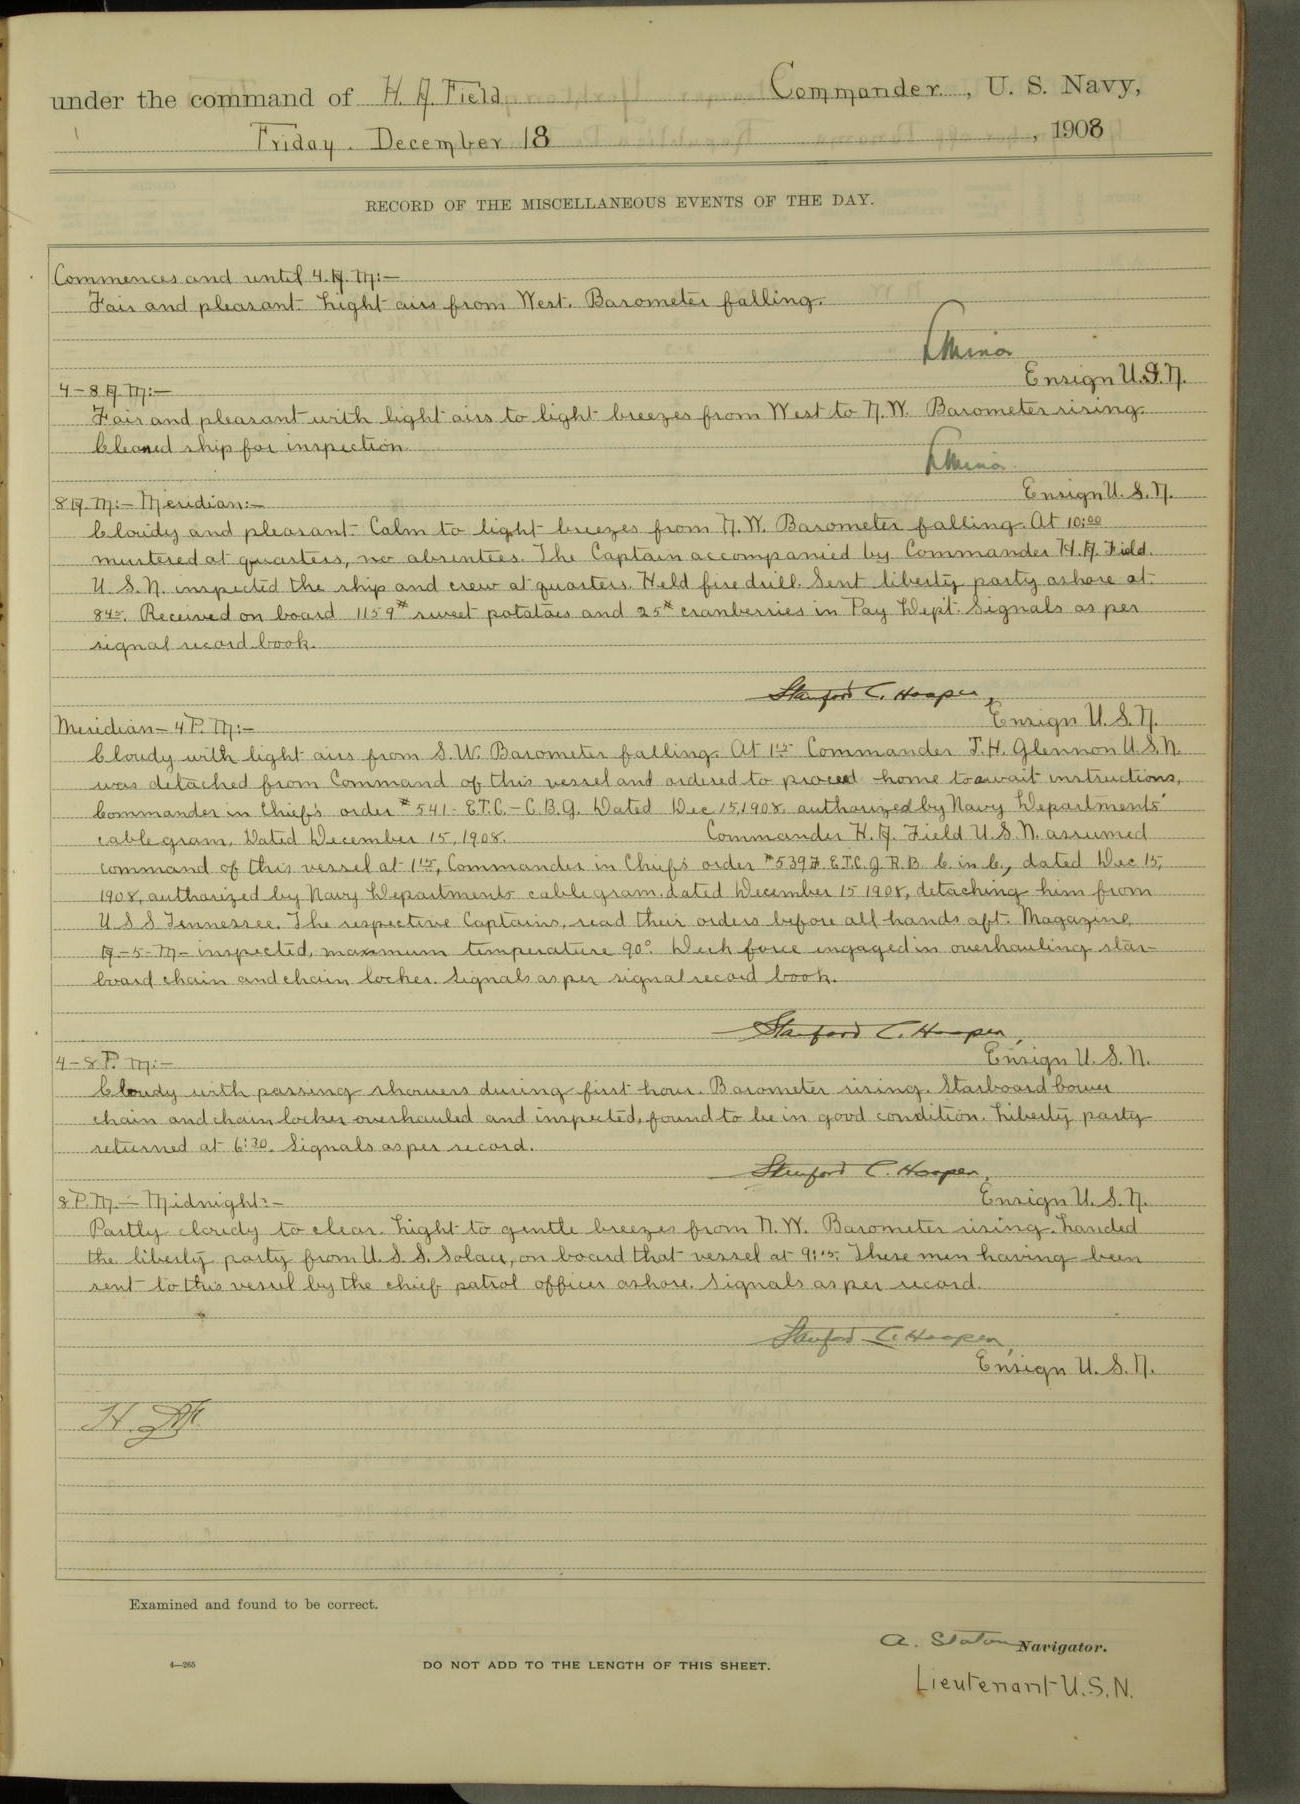 under the command of H. A. Field Commander, U. S. Navy,
Friday. December 18, 1908
RECORD OF THE MISCELLANEOUS EVENTS OF THE DAY.
Commences and until 4. A. M:-
Fair and pleasant. Light airs from West. Barometer falling.
L Minor
Ensign U.S.N.
4-8 A M:-
Fair and pleasant with light airs to light breezes from West to N.W. Barometer rising.
Cleaned ship for inspection.
L Minor
Ensign U. S. N.
8 A. M:- Meridian:-
Cloudy and pleasant. Calm to light breezes from N.W. Barometer falling. At 10:00
mustered at quarters, no absentees. The Captain accompanied by Commander H. A. Field.
U. S. N. inspected the ship and crew at quarters. Held fire drill. Sent liberty party ashore at
845. Received on board 1159# sweet potatoes and 25# cranberries in Pay Dep't. Signals as per
signal record book.
Stanford C. Hooper,
Ensign U. S. N.
Meridian - 4 P. M:-
Cloudy with light airs from S.W. Barometer falling. At 115 Commander J. H. Glennon U.S.N.
was detached from Command of this vessel and ordered to proceed home to await instructions,
Commander in Chief's order #541- E.T.C.- C.B.G. Dated Dec 15, 1908, authorized by Navy Departments'
cablegram, Dated December 15, 1908. Commander H. A. Field U.S.N. assumed
command of this vessel at 115, Commander in Chief's order E.T.C. J.R.B. C. in C., dated Dec 15,
1908, authorized by Navy Departments cablegram, dated December 15 1908, detaching him from
U S S Tennessee. The respective Captains, read their orders before all hands aft. Magazine,
A-5-M- inspected, maxmum temperature 90°. Deck force engaged in overhauling star-
board chain and chain locker. Signals as per signal record book.
Stanford C. Hooper,
Ensign U. S. N.
4-8 P. M:-
Cloudy with passing showers during first hour. Barometer rising. Starboard bower
chain and chain locker overhauled and inspected, found to be in good condition. Liberty party
returned at 6:30. Signals as per record.
Stanford C. Hooper,
Ensign U. S. N.
8 P. M. - Midnight:-
Partly cloudy to clear. Light to gentle breezes from N. W. Barometer rising. Landed
the liberty party from U. S. S. Solace, on board that vessel at 9:15. These men having been
sent to this vessel by the chief patrol officer ashore. Signals as per record.
Stanford C. Hooper,
Ensign U. S. N.
H. A. F.
Examined and found to be correct.
A. Staton Navigator.
4-265 DO NOT ADD TO THE LENGTH OF THIS SHEET.
Lieutenant U.S.N.